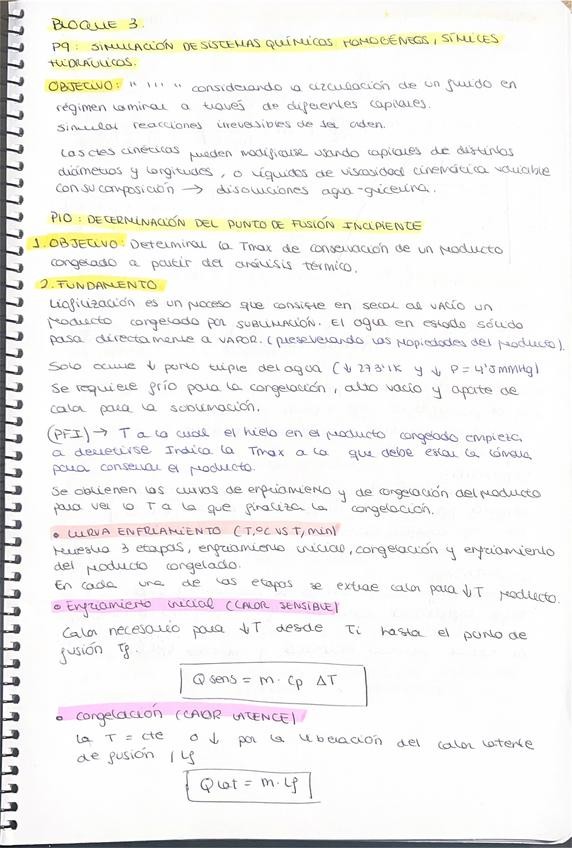 BLOQUE 3.
P9: SIMULACIÓN DE SISTEMAS QUÍMICOS HOMOGÉNEOS, SÍMILES
HIDRÁULICOS.
OBJETIVO: " ''' " considerando la circulación de un fluido en
régimen laminar a través de diferentes capilares.
Simular reacciones irreversibles de 1er orden.
Las ctes cinéticas pueden modificarse usando capilares de distintos
diámetros y longitudes, o líquidos de viscosidad cinemática variable
con su composición → disoluciones agua-glicerina.
P10: DETERMINACIÓN DEL PUNTO DE FUSIÓN INCIPIENTE
1. OBJETIVO: Determinar la Tmax de conservación de un producto
congelado a partir del análisis térmico.
2. FUNDAMENTO
Liofilización es un proceso que consiste en secar al vacío un
producto congelado por SUBLIMACIÓN. El agua en estado sólido
pasa directamente a VAPOR. (preservando las propiedades del producto).
Solo ocurre ↓ punto triple del agua (↓ 273'1K y ↓ P = 4'5mmHg)
Se requiere frío para la congelación, alto vacío y aporte de
calor para la sublimación.
(PFI) → T a la cual el hielo en el producto congelado empieza
a derretirse. Indica la Tmax a la que debe estar la cámara
para conservar el producto.
Se obtienen las curvas de enfriamiento y de congelación del producto
para ver la T a la que finaliza la congelación.
• CURVA ENFRIAMIENTO (T,ºC VS T, min)
Muestra 3 etapas, enfriamiento inicial, congelación y enfriamiento
del producto congelado.
En cada una de las etapas se extrae calor para ↓T producto.
• Enfriamiento inicial (CALOR SENSIBLE)
Calor necesario para ↓T desde Ti hasta el punto de
fusión Tf.
Q sens = m · Cp ΔT
• Congelación (CALOR LATENTE)
La T = cte o ↓ por la liberación del calor latente
de fusión, Lf
Q lat = m · Lf